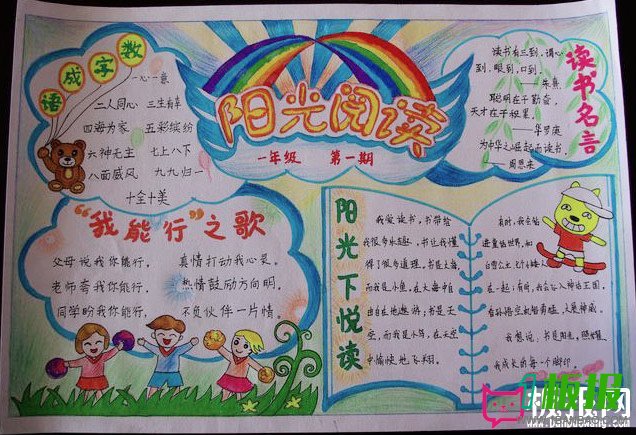 数字成语
一心一意
二人同心 三生有幸
四海为家 五彩缤纷
六神无主 七上八下
八面威风 九九归一
十全十美
阳光阅读
一年级 第一期
读书名言
读书有三到，谓心
到，眼到，口到。
——朱熹
聪明在于勤奋，
天才在于积累。
——华罗庚
为中华之崛起而读书。
——周恩来
“我能行”之歌
父母说我你能行， 真情打动我心灵。
老师喜我你能行， 热情鼓励方向明。
同学盼我你能行， 不负伙伴一片情。
阳光下悦读
我爱读书，书带给
我很多乐趣，书让我懂
得了很多道理，书是大海，
我是小鱼，在大海中自
由自在地遨游；书是天
空，而我是小鸟，在天空
中愉快地飞翔。
有时，我会钻
进童话世界，和
白雪公主、七个小矮人
在一起；有时，我会 神话王国，
看孙悟空机智勇猛，大展神威。
我想说：书是阳光，照耀
我成长的每一个脚印。
板报网